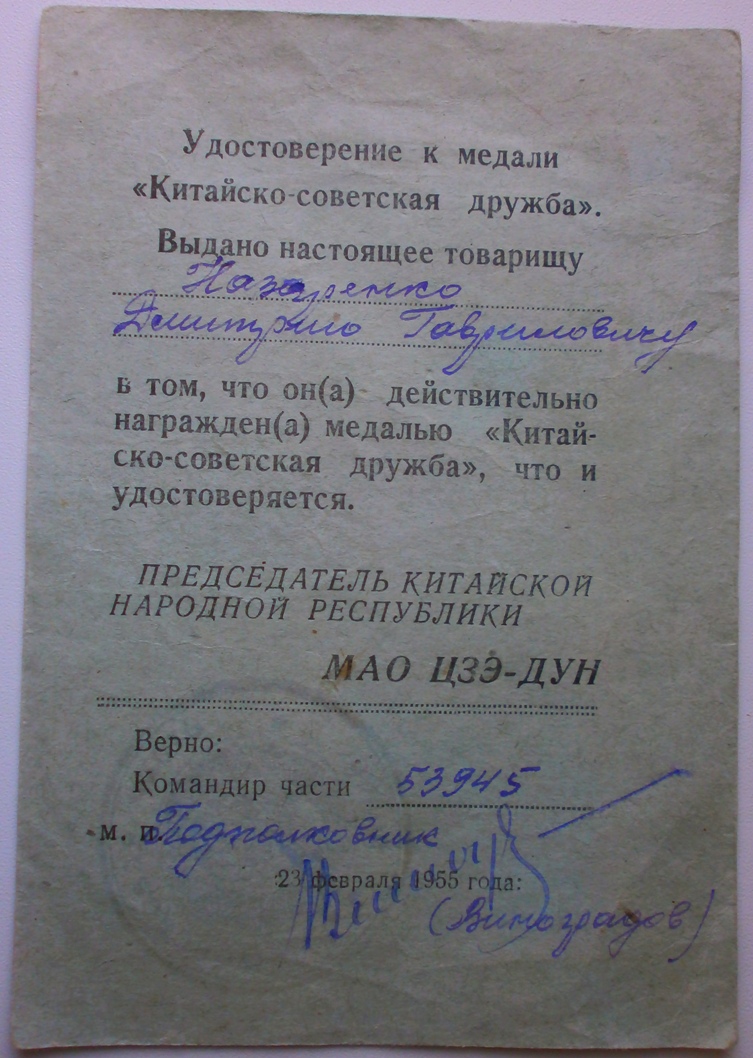 Удостоверение к медали
«Китайско-советская дружба».
Выдано настоящее товарищу
Назаренко
Дмитрию Гавриловичу
в том, что он(а) действительно
награжден(а) медалью «Китай-
ско-советская дружба», что и
удостоверяется.
ПРЕДСЕДАТЕЛЬ КИТАЙСКОЙ
НАРОДНОЙ РЕСПУБЛИКИ
МАО ЦЗЭ-ДУН
Верно:
Командир части 53945
м. п. Подполковник
23 февраля 1955 года:
(Виноградов)